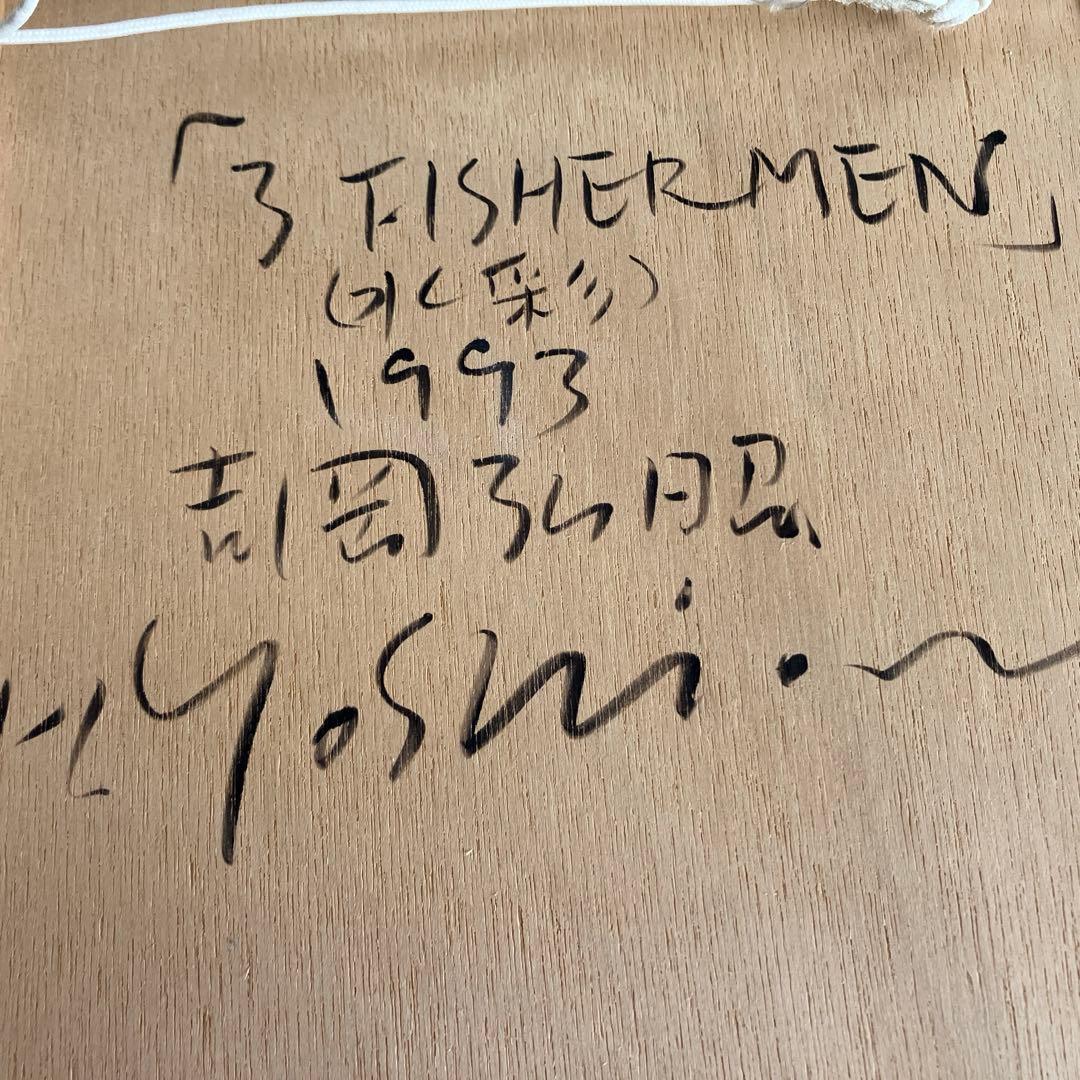 「3 FISHERMEN」
(水彩)
1993
吉岡弘昭
H. Yoshio